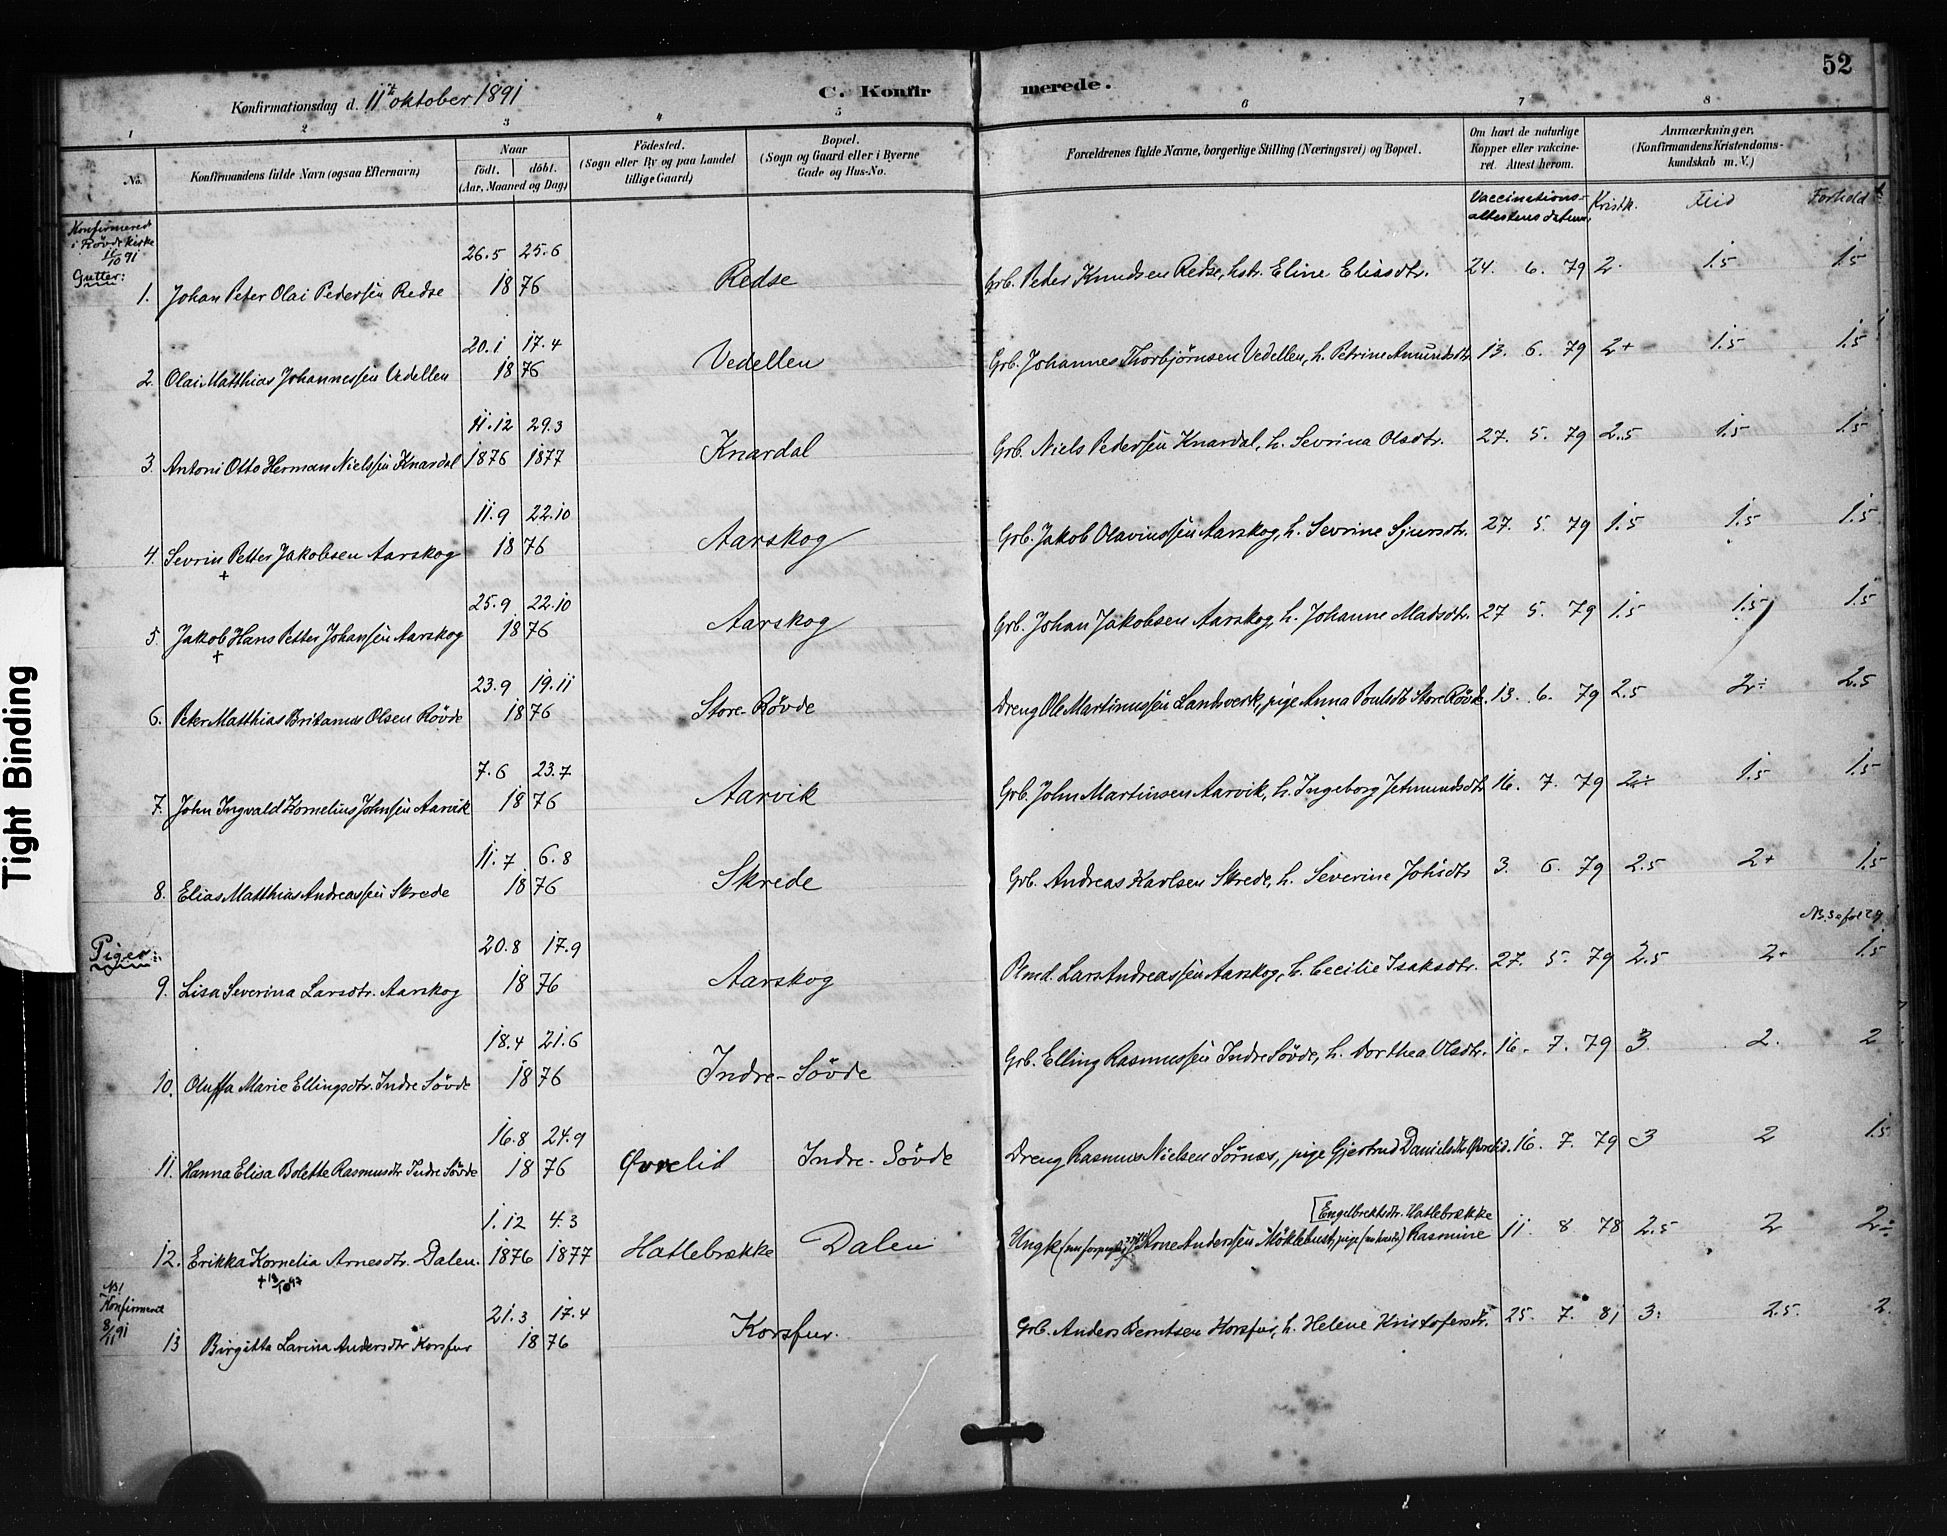 52
Konfirmationsdag d. 11te oktober 1891
C. Konfir merede.
1 2 3 4 5 6 7 8
No.
Konfirmandens fulde Navn (ogsaa Efternavn)
Naar
födt. döbt.
(Aar, Maaned og Dag)
Födested.
(Sogn eller By og paa Landet
tillige Gaard)
Bopæl.
(Sogn og Gaard eller i Byerne
Gade og Hus-No.
Forældrenes fulde Navne, borgerlige Stilling (Næringsvei) og Bopæl.
Om havt de naturlige
Kopper eller vakcine-
ret. Attest herom.
Anmærkninger.
(Konfirmandens Kristendoms-
kundskab m. V.)
Vaccinations-
attestens datum. Kristk. Flid Forhold
Konfirmeret
i Rövde kirke
11/10 91
Gutter:
26.5 25.6
1. Johan Peter Olai Pedersen Redse 18 76 Redse Grb. Peder Knudsen Redse, hstr. Eline Eliasdtr. 24. 6. 79 2. 1.5 1.5
20.1 17.4
2. Olai Matthias Johannessen Vedellen 18 76 Vedellen Grb. Johannes Thorbjörnsen Vedellen, h. Petrine Amundsdtr. 13. 6. 79 2+ 1.5 1.5
11.12 29.3
3. Antoni Otto Herman Nielssen Knardal 1876 1877 Knardal Grb. Niels Pedersen Knardal, h. Sevrina Olsdtr. 27. 5. 79 2.5 1.5 1.5
11.9 22.10
4. Sevrin Petter Jakobsen Aarskog 18 76 Aarskog Grb. Jakob Olavinssen Aarskog, h. Sevrine Sjursdtr. 27. 5. 79 1.5 1.5 1.5
+
25.9 22.10
5. Jakob Hans Petter Johansen Aarskog 18 76 Aarskog Grb. Johan Jakobsen Aarskog, h. Johanne Madsdtr. 27 5. 79 1.5 1.5 1.5
+
23.9 19.11
6. Peter Matthias Britanus Olsen Rövde 18 76 Store-Rövde Dreng Ole Martinussen Landverk, pige Anna Poulsdtr. Store Rövde. 13. 6. 79 2.5 2÷ 2.5
7.6 23.7
7. John Ingvald Kornelius Johnsen Aarvik 18 76 Aarvik Grb. John Martinsen Aarvik, h. Ingeborg Jetmundsdtr 16. 7. 79 2÷ 1.5 1.5
11.7 6.8
8. Elias Matthias Andreassen Skrede 18 76 Skrede Grb. Andreas Karlsen Skrede, h. Severine Johsdtr 3. 6. 79 2.5 2+ 1.5
Piger:
20.8 17.9
9. Lisa Severina Larsdtr. Aarskog 18 76 Aarskog Plmd. Lars Andreassen Aarskog, h. Cecilie Isaksdtr. 27. 5. 79 2.5 2+ 1.5
18.4 21.6
10. Oluffa Marie Ellingsdtr. Indre Sövde 18 76 Indre-Sövde Grb. Elling Rasmussen Indre Sövde, h. Dorthea Olsdtr. 16. 7. 79 3. 2. 2
16.8 24.9
11. Hanna Elisa Bolette Rasmusdtr Indre Sövde 18 76 Øvrelid Indre-Sövde Dreng Rasmus Nielsen Sörnes, pige Gjertrud Danielsdtr Øvrelid. 16. 7. 79 3 2 1.5
[Engelbrektsdtr. Hatlebrække
1.12 4.3
12. Erikka Kornelia Arnesdtr. Dalen. 1876 1877 Hatlebrække Dalen Ungk Anderssen Möklebust, pige Rasmine 11. 8 78 2.5 2 2÷
NB!
Konfirmeret
8/11 91
21.3 17.4
13 Birgitta Larina Andersdtr Korsfur 18 76 Korsfur. Grb. Anders Berntsen Korsfur, h. Helene Kristofersdtr. 25. 7. 81 3. 2.5. 2.
Tight Binding